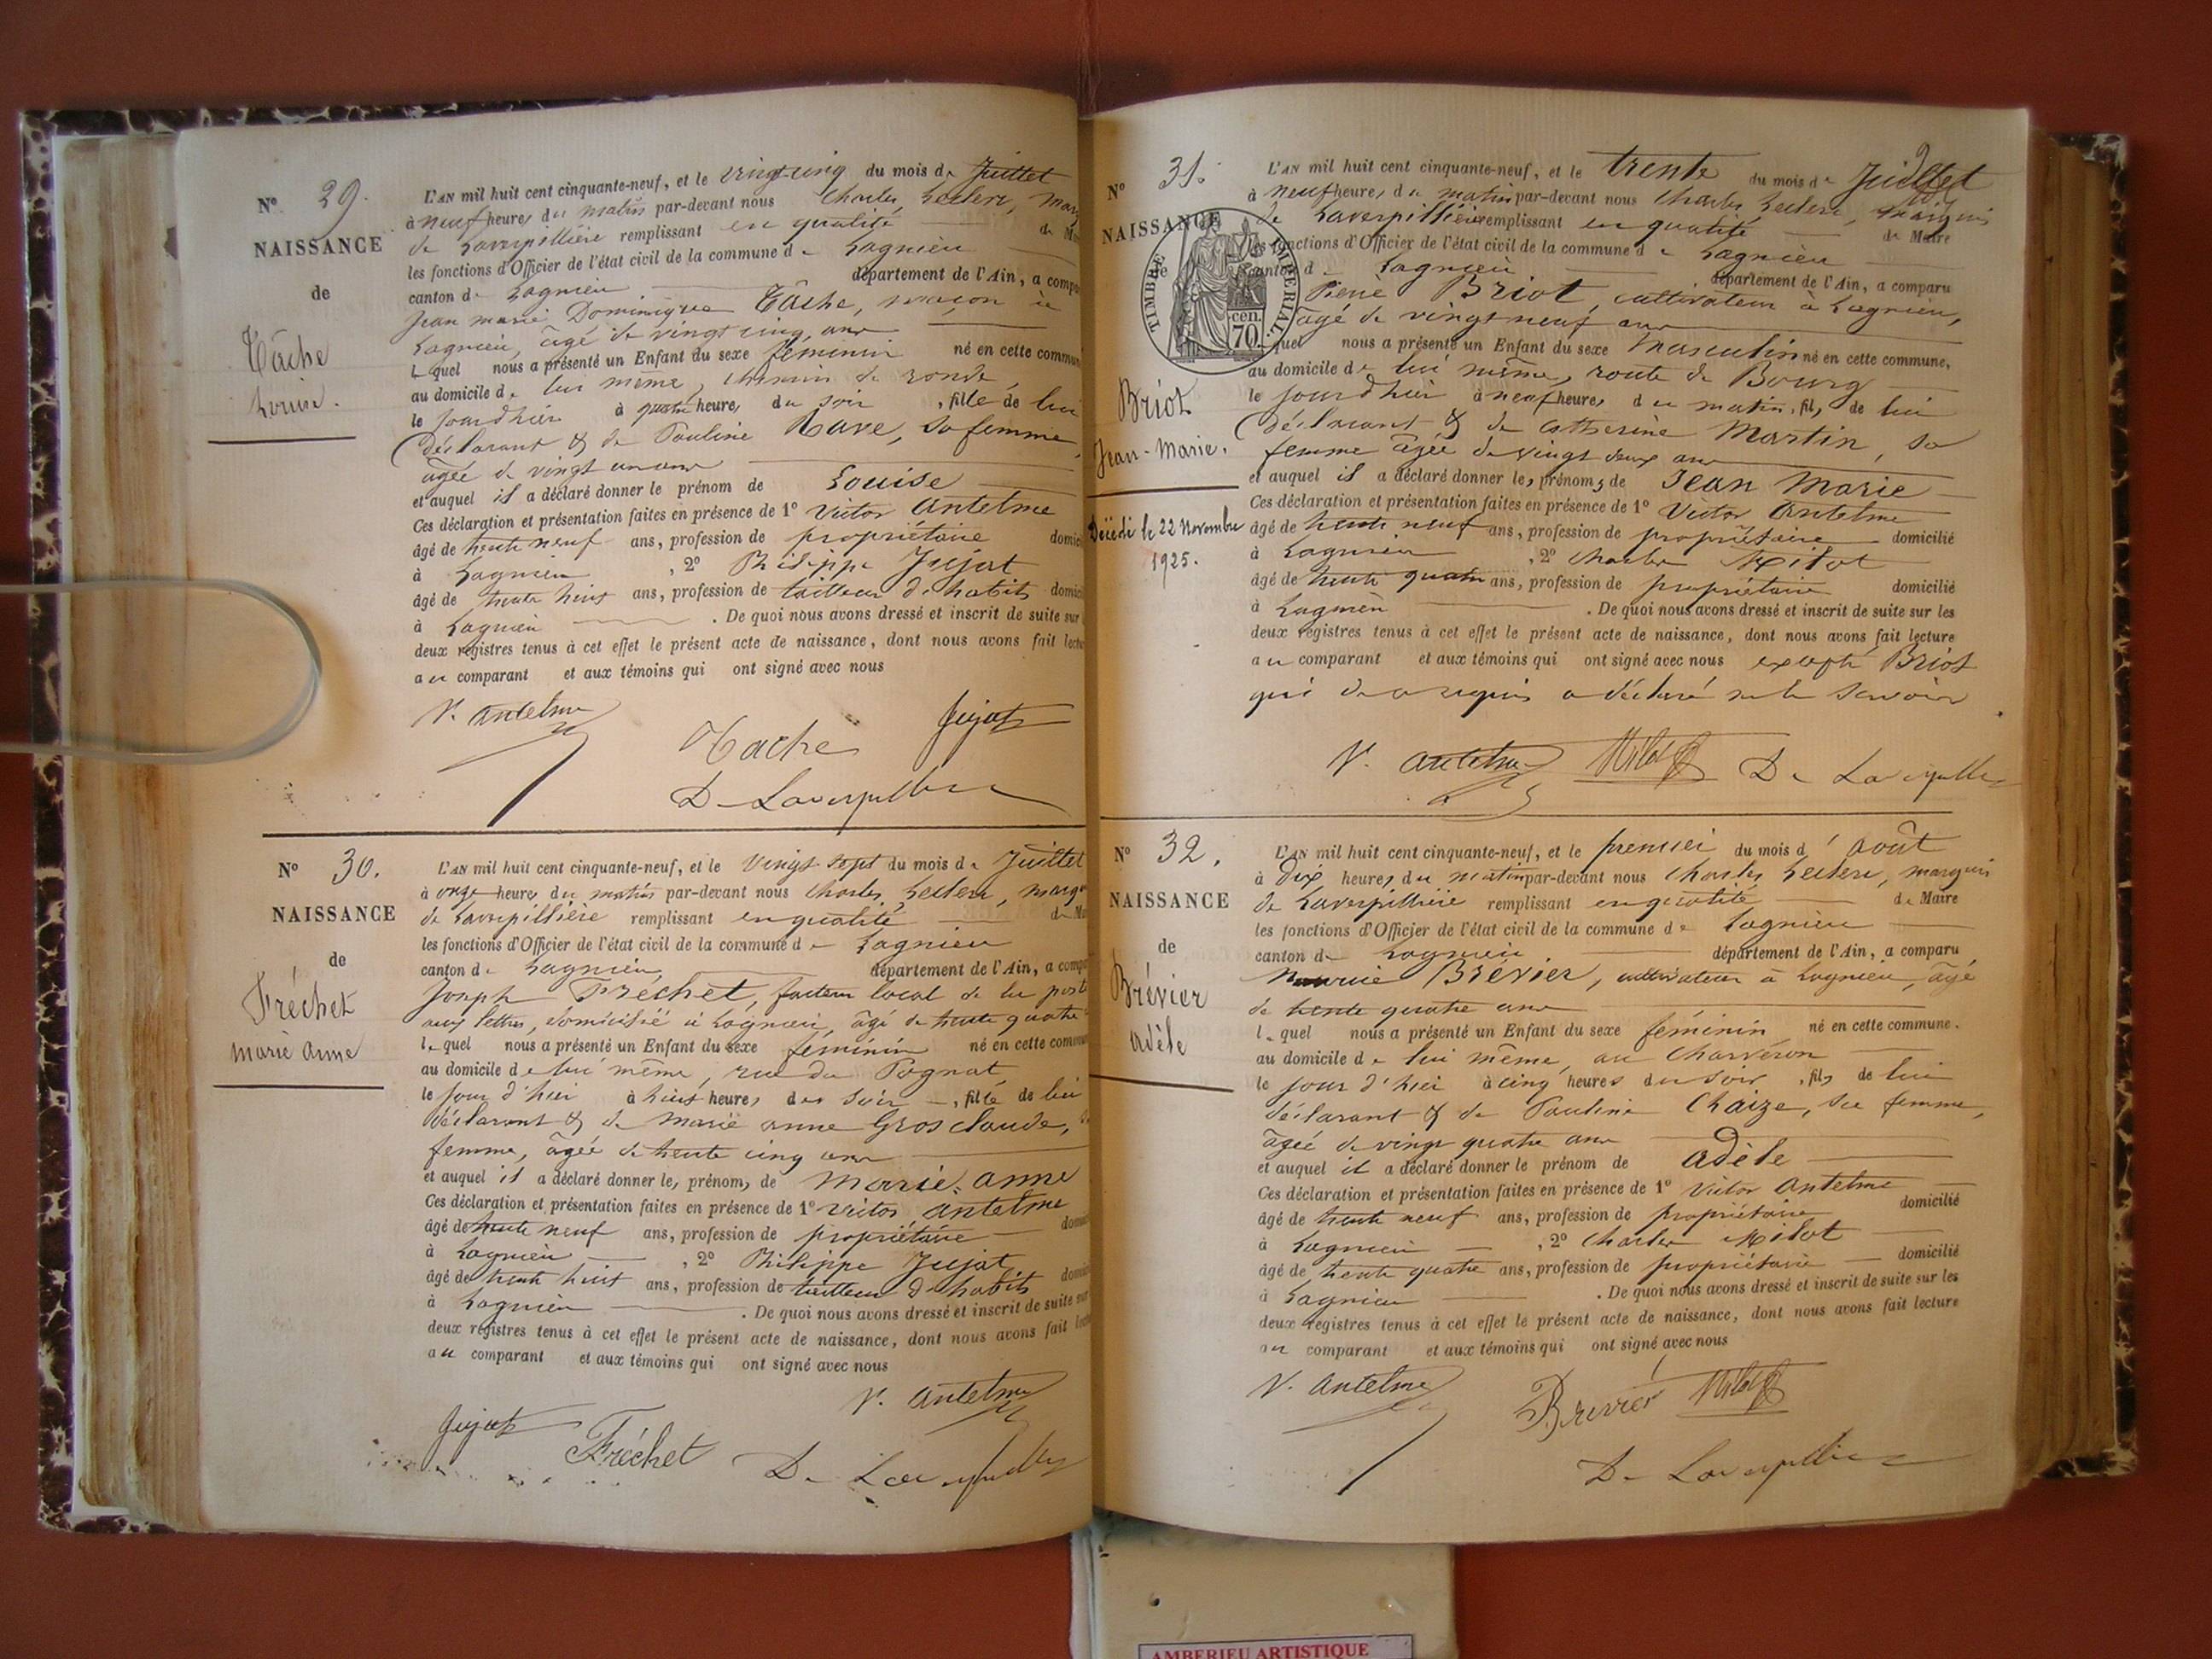 N° 29.
NAISSANCE
de
Tâche
Louise.
L'AN mil huit cent cinquante-neuf, et le vingt-cinq du mois de Juillet
à neuf heures du matin par-devant nous Charles Leclerc, marq
de Laverpillière remplissant en qualité de M
les fonctions d'Officier de l'état civil de la commune de Lagnieu
canton de Lagnieu département de l'Ain, a compa
Jean marie Dominique Tâche, maçon à
Lagnieu, âgé de vingt cinq ans
Lequel nous a présenté un Enfant du sexe féminin né en cette commun
au domicile de lui même, chemin de ronde,
le jour d'hier à quatre heures du soir, fille de lui
Déclarant & de Pauline Rave, sa femme,
âgée de vingt un ans
et auquel il a déclaré donner le prénom de Louise
Ces déclaration et présentation faites en présence de 1° Victor Antelme
âgé de trente neuf ans, profession de propriétaire domic
à Lagnieu, 2° Philippe Jujat
âgé de trente huit ans, profession de tailleur d'habits domic
à Lagnieu. De quoi nous avons dressé et inscrit de suite sur
deux registres tenus à cet effet le présent acte de naissance, dont nous avons fait lectu
au comparant et aux témoins qui ont signé avec nous
V. Antelme
Jujat
Tache
De Laverpillière
N° 30.
NAISSANCE
de
Fréchet
marie anne
L'AN mil huit cent cinquante-neuf, et le vingt-sept du mois de Juillet
à onze heures du matin par-devant nous Charles Leclerc, marqu
de Laverpillière remplissant en qualité de Ma
les fonctions d'Officier de l'état civil de la commune de Lagnieu
canton de Lagnieu département de l'Ain, a compa
Joseph Fréchet, facteur local de la post
aux lettres, domicilié à Lagnieu, âgé de trente quatre
lequel nous a présenté un Enfant du sexe féminin né en cette commun
au domicile de lui même, rue du Pognat
le jour d'hier à huit heures du soir, fille de lui
déclarant & de Marie anne Gros claude,
femme, âgée de trente cinq ans
et auquel il a déclaré donner les prénoms de Marie-anne
Ces déclaration et présentation faites en présence de 1° Victor Antelme
âgé de trente neuf ans, profession de propriétaire domic
à Lagnieu, 2° Philippe Jujat
âgé de trente huit ans, profession de tailleur d'habits domic
à Lagnieu. De quoi nous avons dressé et inscrit de suite sur
deux registres tenus à cet effet le présent acte de naissance, dont nous avons fait lect
au comparant et aux témoins qui ont signé avec nous
V. Antelme
Jujat
Fréchet
De Laverpillière
N° 31.
NAISSANCE
de
TIMBRE IMPERIAL
70 cen.
Briot
Jean-Marie.
Décédé le 22 Novembre
1925.
L'AN mil huit cent cinquante-neuf, et le trente du mois de Juillet
à neuf heures du matin par-devant nous Charles Leclerc, marquis
de Laverpillière remplissant en qualité de Maire
les fonctions d'Officier de l'état civil de la commune de Lagnieu
canton de Lagnieu département de l'Ain, a comparu
Pierre Briot, cultivateur à Lagnieu,
âgé de vingt neuf ans
quel nous a présenté un Enfant du sexe masculin né en cette commune,
au domicile de lui même, route de Bourg
le jour d'hier à neuf heures du matin, fils de lui
Déclarant & de Catherine Martin, sa
femme âgée de vingt deux ans
et auquel il a déclaré donner les prénoms de Jean Marie
Ces déclaration et présentation faites en présence de 1° Victor Antelme
âgé de trente neuf ans, profession de propriétaire domicilié
à Lagnieu, 2° Charles Milot
âgé de trente quatre ans, profession de propriétaire domicilié
à Lagnieu. De quoi nous avons dressé et inscrit de suite sur les
deux registres tenus à cet effet le présent acte de naissance, dont nous avons fait lecture
au comparant et aux témoins qui ont signé avec nous excepté Briot
qui de ce requis a déclaré ne le savoir
V. Antelme Milot De Laverpillière
N° 32.
NAISSANCE
de
Brévier
Adèle
L'AN mil huit cent cinquante-neuf, et le premier du mois d'août
à dix heures du matin par-devant nous Charles Leclerc, marquis
de Laverpillière remplissant en qualité de Maire
les fonctions d'Officier de l'état civil de la commune de Lagnieu
canton de Lagnieu département de l'Ain, a comparu
Brévier, cultivateur à Lagnieu, âgé
de trente quatre ans
lequel nous a présenté un Enfant du sexe féminin né en cette commune.
au domicile de lui même, au Charveron
le jour d'hier à cinq heures du soir, fils de lui
déclarant & de Pauline Chaize, sa femme,
âgée de vingt quatre ans
et auquel il a déclaré donner le prénom de Adèle
Ces déclaration et présentation faites en présence de 1° Victor Antelme
âgé de trente neuf ans, profession de propriétaire domicilié
à Lagnieu, 2° Charles Milot
âgé de trente quatre ans, profession de propriétaire domicilié
à Lagnieu. De quoi nous avons dressé et inscrit de suite sur les
deux registres tenus à cet effet le présent acte de naissance, dont nous avons fait lecture
au comparant et aux témoins qui ont signé avec nous
V. Antelme Brevier Milot
De Laverpillière
AMBERIEU ARTISTIQUE